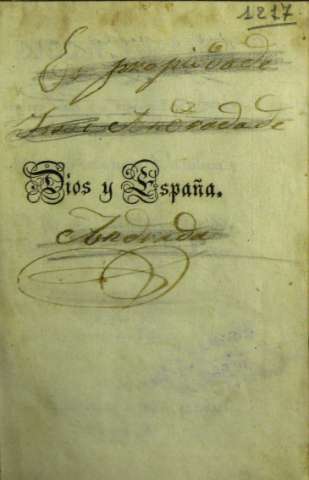 1217
Es propiedade
Andrada de
Dios y España.
Andrada